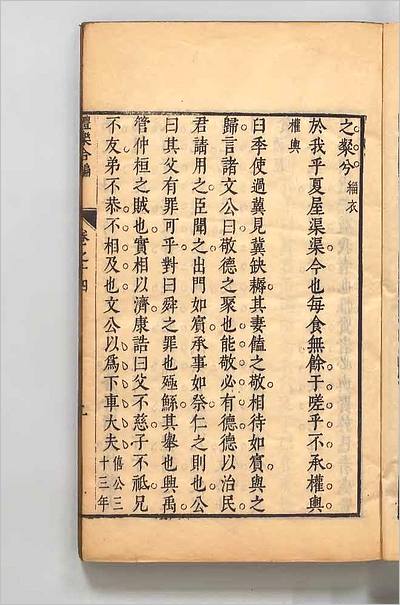 之粲兮緇衣
於我乎夏屋渠渠今也每食無餘于嗟乎不承權輿
權輿
臼季使過冀見冀缺耨其妻饁之敬相待如賓與之
歸言諸文公曰敬德之聚也能敬必有德德以治民
君請用之臣聞之出門如賓承事如祭仁之則也公
曰其父有罪可乎對曰舜之罪也殛鯀其舉也興禹
管仲桓之賊也實相以濟康誥曰父不慈子不祗兄
不友弟不恭不相及也文公以為下軍大夫僖公三十三年
禮樂合編
卷之十四